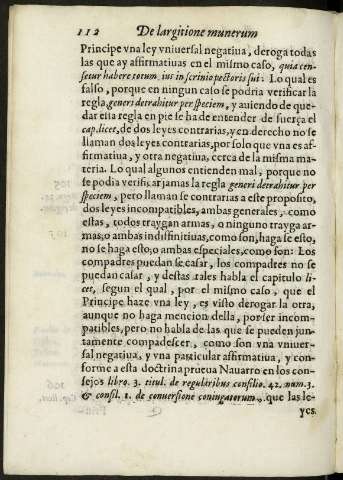 112 De largitione munerum
Principe vna ley vniuersal negatiua, deroga todas
las que ay affirmatiuas en el mismo caso, quia cen-
setur habere totum ius in scrinio pectoris sui: Lo qual es
falso, porque en ningun caso se podria verificar la
regla, generi detrahitur per speciem, y auiendo de que-
dar esta regla en pie se ha de entender de fuerça el
cap. licet, de dos leyes contrarias, y en derecho no se
llaman dos leyes contrarias, por solo que vna es af-
firmatiua, y otra negatiua, cerca de la misma ma-
teria. Lo qual algunos entienden mal, porque no
se podia verificar jamas la regla generi detrahitur per
speciem, pero llaman se contrarias a este proposito,
dos leyes incompatibles, ambas generales, como
estas, todos traygan armas, o ninguno trayga ar-
mas, o ambas indiffinitiuas, como son, haga se esto,
no se haga esto, o ambas especiales, como son: Los
compadres puedan se casar, los compadres no se
puedan casar, y destas tales habla el capitulo li-
cet, segun el qual, por el mismo caso, que el
Principe haze vna ley, es visto derogar la otra,
aunque no haga mencion della, por ser incom-
patibles, pero no habla de las que se pueden jun-
tamente compadescer, como son vna vniuer-
sal negatiua, y vna particular affirmatiua, y con-
forme a esta doctrina prueua Nauarro en los con-
sejos libro. 3. titul. de regularibus consilio. 42. num. 3.
& consil. 1. de conuersione coniugatorum, que las le-
yes.